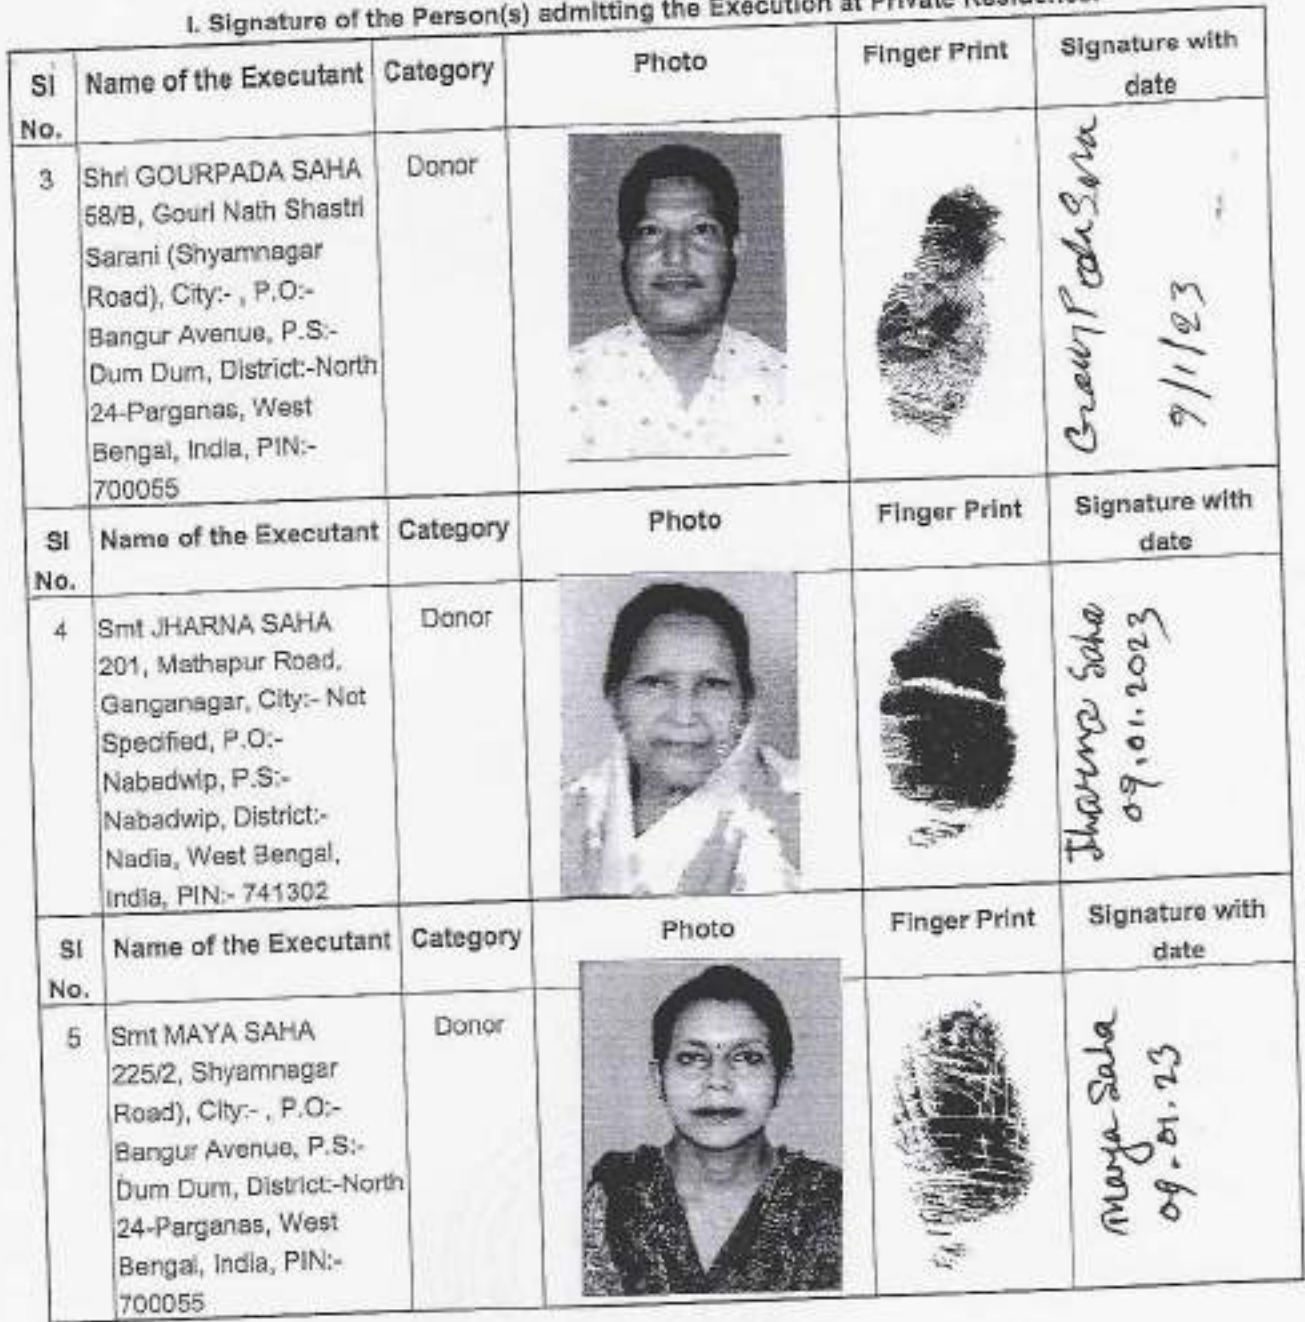 I. Signature of the Person(s) admitting the Execution at Private Residence.
Sl No. Name of the Executant Category Photo Finger Print Signature with date
3 Shri GOURPADA SAHA Donor
58/B, Gouri Nath Shastri
Sarani (Shyamnagar
Road), City:- , P.O:-
Bangur Avenue, P.S:-
Dum Dum, District:-North
24-Parganas, West
Bengal, India, PIN:-
700055
9/1/23
Sl No. Name of the Executant Category Photo Finger Print Signature with date
4 Smt JHARNA SAHA Donor
201, Mathapur Road,
Ganganagar, City:- Not
Specified, P.O:-
Nabadwip, P.S:-
Nabadwip, District:-
Nadia, West Bengal,
India, PIN:- 741302
Jharna Saha
09.01.2023
Sl No. Name of the Executant Category Photo Finger Print Signature with date
5 Smt MAYA SAHA Donor
225/2, Shyamnagar
Road), City:- , P.O:-
Bangur Avenue, P.S:-
Dum Dum, District:-North
24-Parganas, West
Bengal, India, PIN:-
700055
Maya Saha
09-01.23